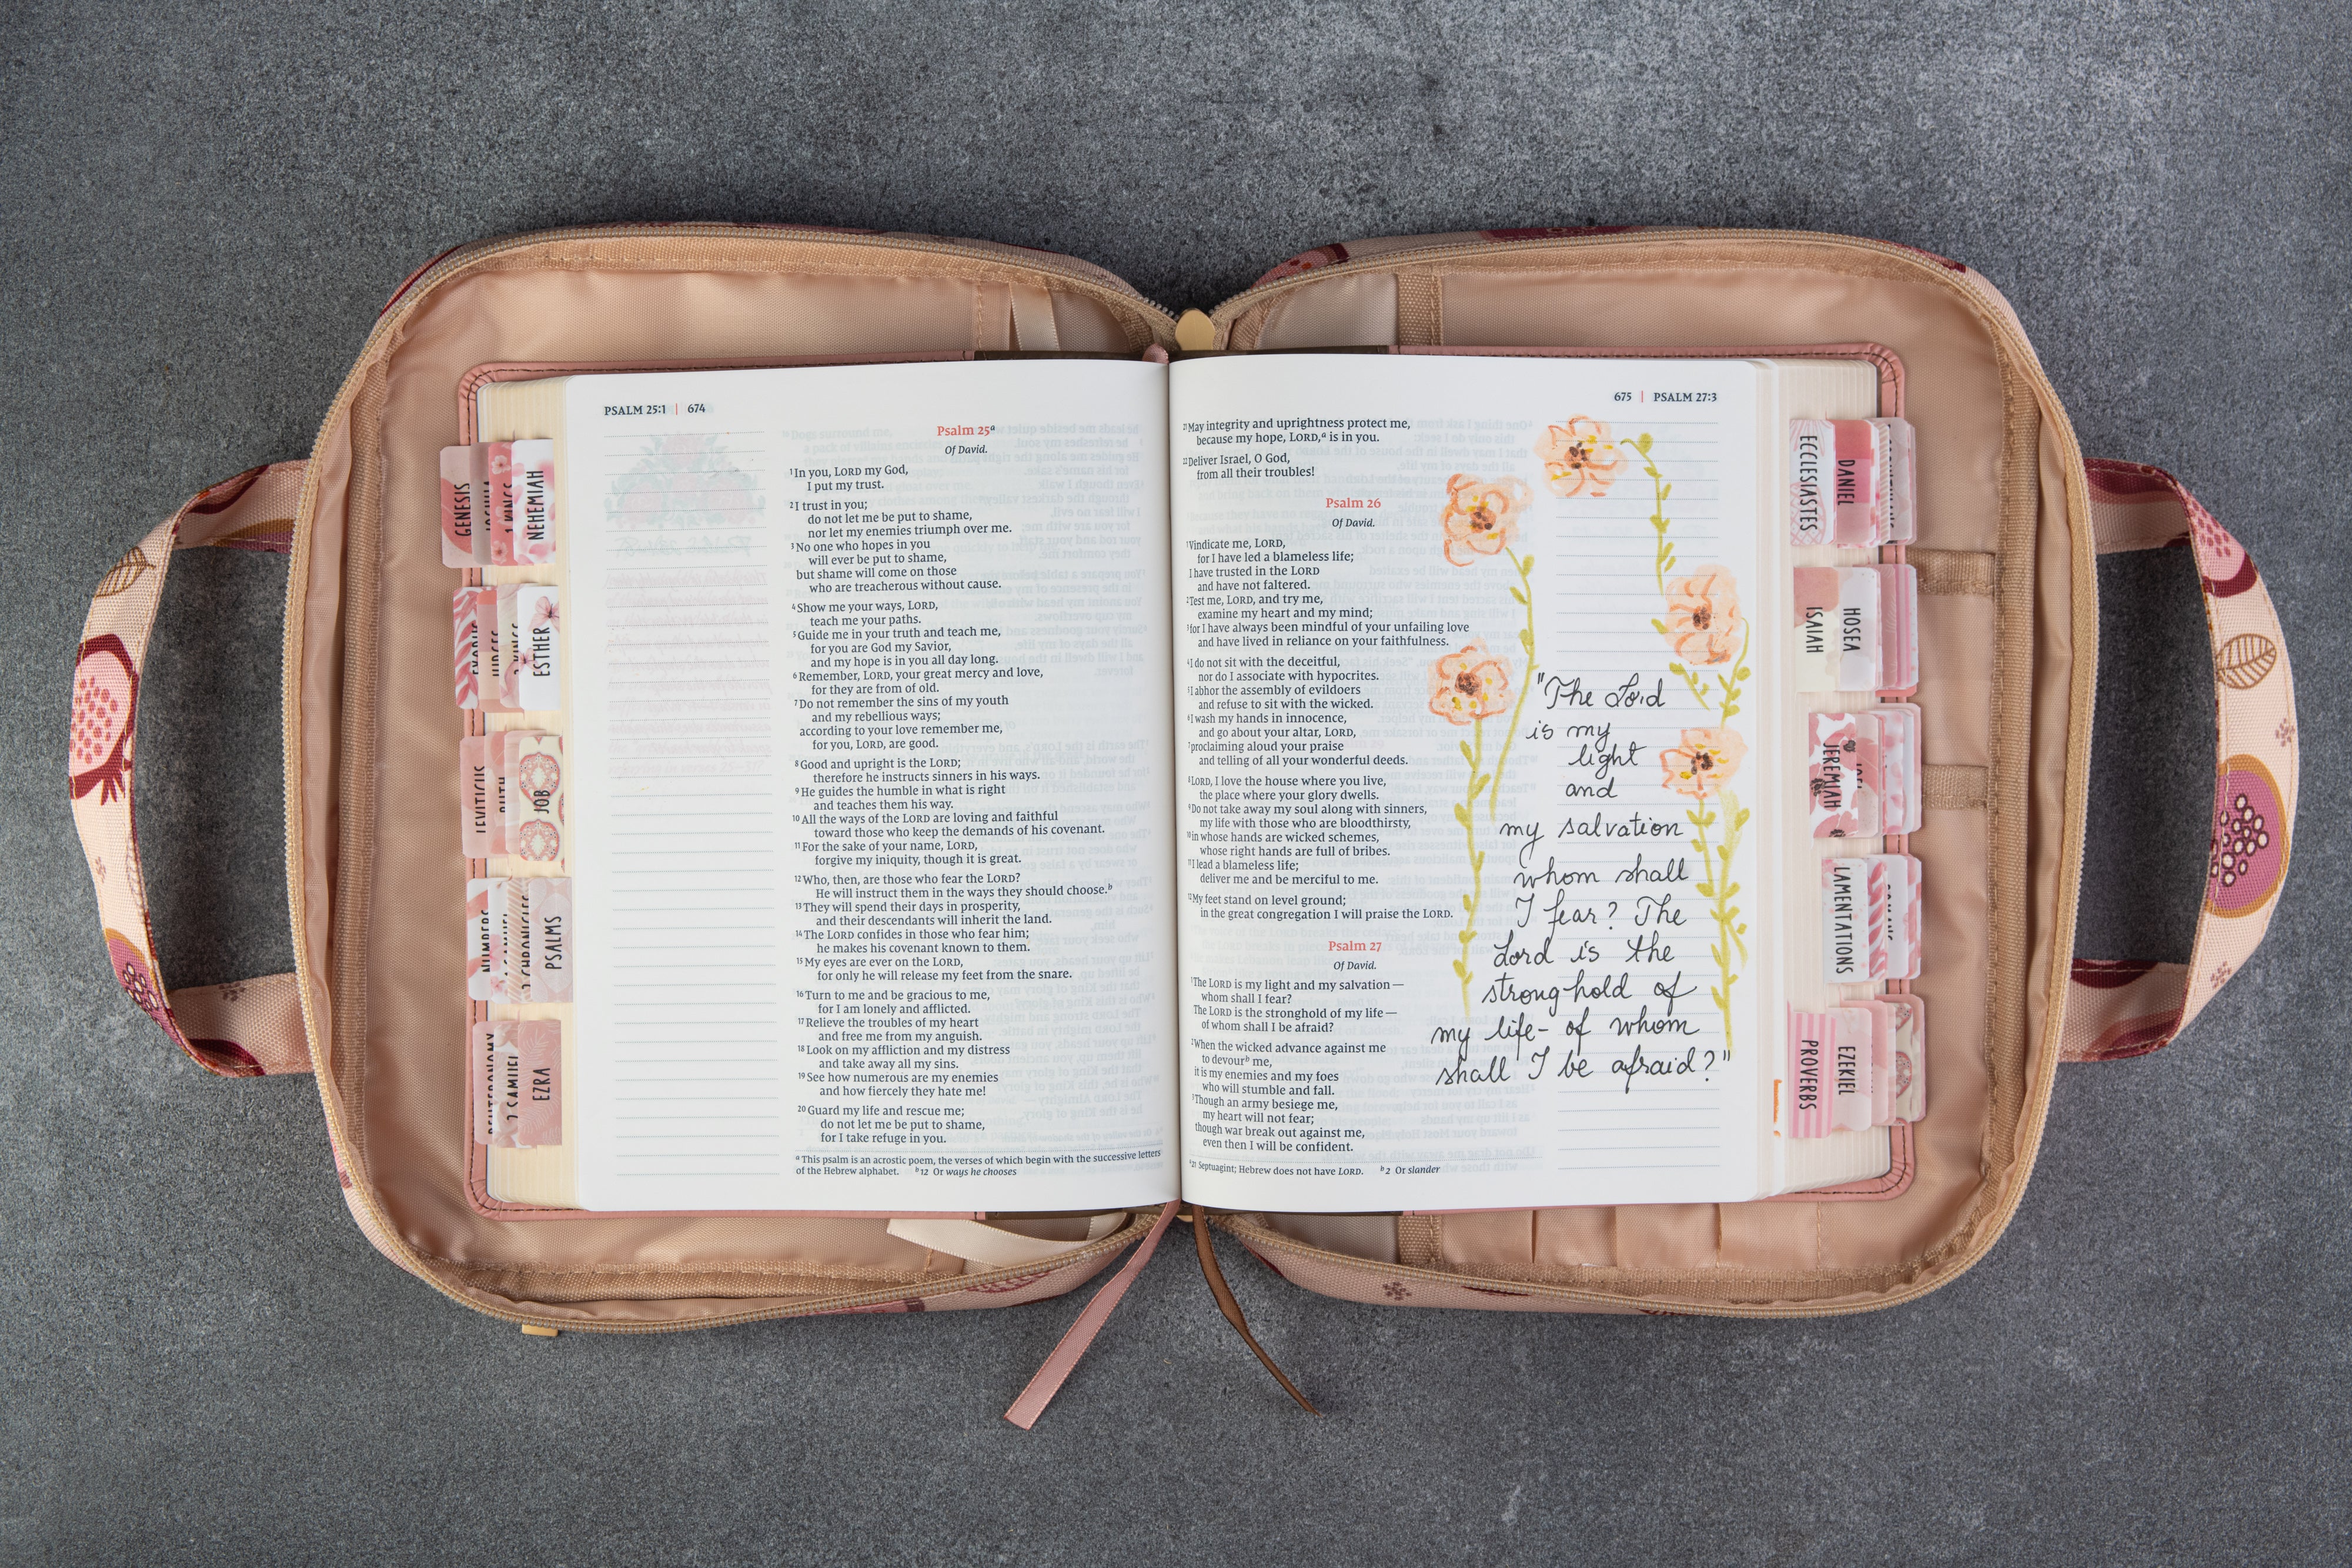 PSALM 25:1 | 674
Psalm 25a
Of David.
1 In you, LORD my God,
I put my trust.
2 I trust in you;
do not let me be put to shame,
nor let my enemies triumph over me.
3 No one who hopes in you
will ever be put to shame,
but shame will come on those
who are treacherous without cause.
4 Show me your ways, LORD,
teach me your paths.
5 Guide me in your truth and teach me,
for you are God my Savior,
and my hope is in you all day long.
6 Remember, LORD, your great mercy and love,
for they are from of old.
7 Do not remember the sins of my youth
and my rebellious ways;
according to your love remember me,
for you, LORD, are good.
8 Good and upright is the LORD;
therefore he instructs sinners in his ways.
9 He guides the humble in what is right
and teaches them his way.
10 All the ways of the LORD are loving and faithful
toward those who keep the demands of his covenant.
11 For the sake of your name, LORD,
forgive my iniquity, though it is great.
12 Who, then, are those who fear the LORD?
He will instruct them in the ways they should choose.b
13 They will spend their days in prosperity,
and their descendants will inherit the land.
14 The LORD confides in those who fear him;
he makes his covenant known to them.
15 My eyes are ever on the LORD,
for only he will release my feet from the snare.
16 Turn to me and be gracious to me,
for I am lonely and afflicted.
17 Relieve the troubles of my heart
and free me from my anguish.
18 Look on my affliction and my distress
and take away all my sins.
19 See how numerous are my enemies
and how fiercely they hate me!
20 Guard my life and rescue me;
do not let me be put to shame,
for I take refuge in you.
a This psalm is an acrostic poem, the verses of which begin with the successive letters
of the Hebrew alphabet. b 12 Or ways he chooses
675 | PSALM 27:3
21 May integrity and uprightness protect me,
because my hope, LORD,a is in you.
22 Deliver Israel, O God,
from all their troubles!
Psalm 26
Of David.
1 Vindicate me, LORD,
for I have led a blameless life;
I have trusted in the LORD
and have not faltered.
2 Test me, LORD, and try me,
examine my heart and my mind;
3 for I have always been mindful of your unfailing love
and have lived in reliance on your faithfulness.
4 I do not sit with the deceitful,
nor do I associate with hypocrites.
5 I abhor the assembly of evildoers
and refuse to sit with the wicked.
6 I wash my hands in innocence,
and go about your altar, LORD,
7 proclaiming aloud your praise
and telling of all your wonderful deeds.
8 LORD, I love the house where you live,
the place where your glory dwells.
9 Do not take away my soul along with sinners,
my life with those who are bloodthirsty,
10 in whose hands are wicked schemes,
whose right hands are full of bribes.
11 I lead a blameless life;
deliver me and be merciful to me.
12 My feet stand on level ground;
in the great congregation I will praise the LORD.
Psalm 27
Of David.
1 The LORD is my light and my salvation—
whom shall I fear?
The LORD is the stronghold of my life—
of whom shall I be afraid?
2 When the wicked advance against me
to devourb me,
it is my enemies and my foes
who will stumble and fall.
3 Though an army besiege me,
my heart will not fear;
though war break out against me,
even then I will be confident.
a 21 Septuagint; Hebrew does not have LORD. b 2 Or slander
"The Lord
is my
light
and
my salvation
whom shall
I fear? The
Lord is the
stronghold of
my life- of whom
shall I be afraid?"
GENESIS
1 KINGS
NEHEMIAH
ESTHER
LEVITICUS
RUTH
JOB
NUMBERS
2 CHRONICLES
PSALMS
DEUTERONOMY
2 SAMUEL
EZRA
ECCLESIASTES
DANIEL
ISAIAH
HOSEA
JEREMIAH
JOEL
LAMENTATIONS
PROVERBS
EZEKIEL